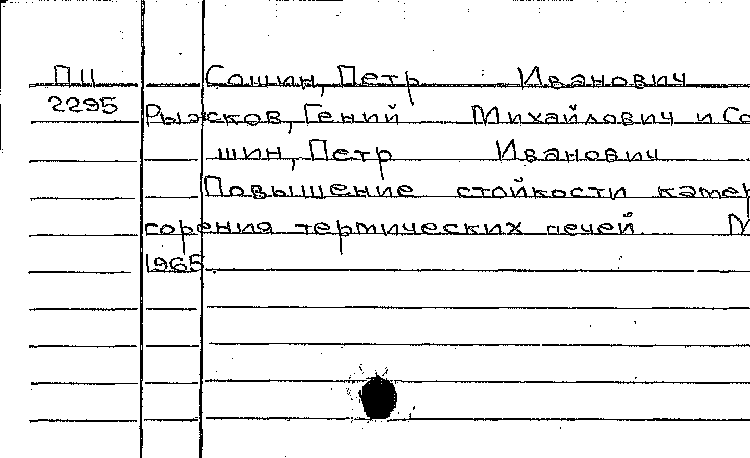 П11 Сошин, Петр Иванович
2295
Рыжков, Гений Михайлович и Со
шин, Петр Иванович
Повышение стойкости камер
сорения термических печей. М
1965.